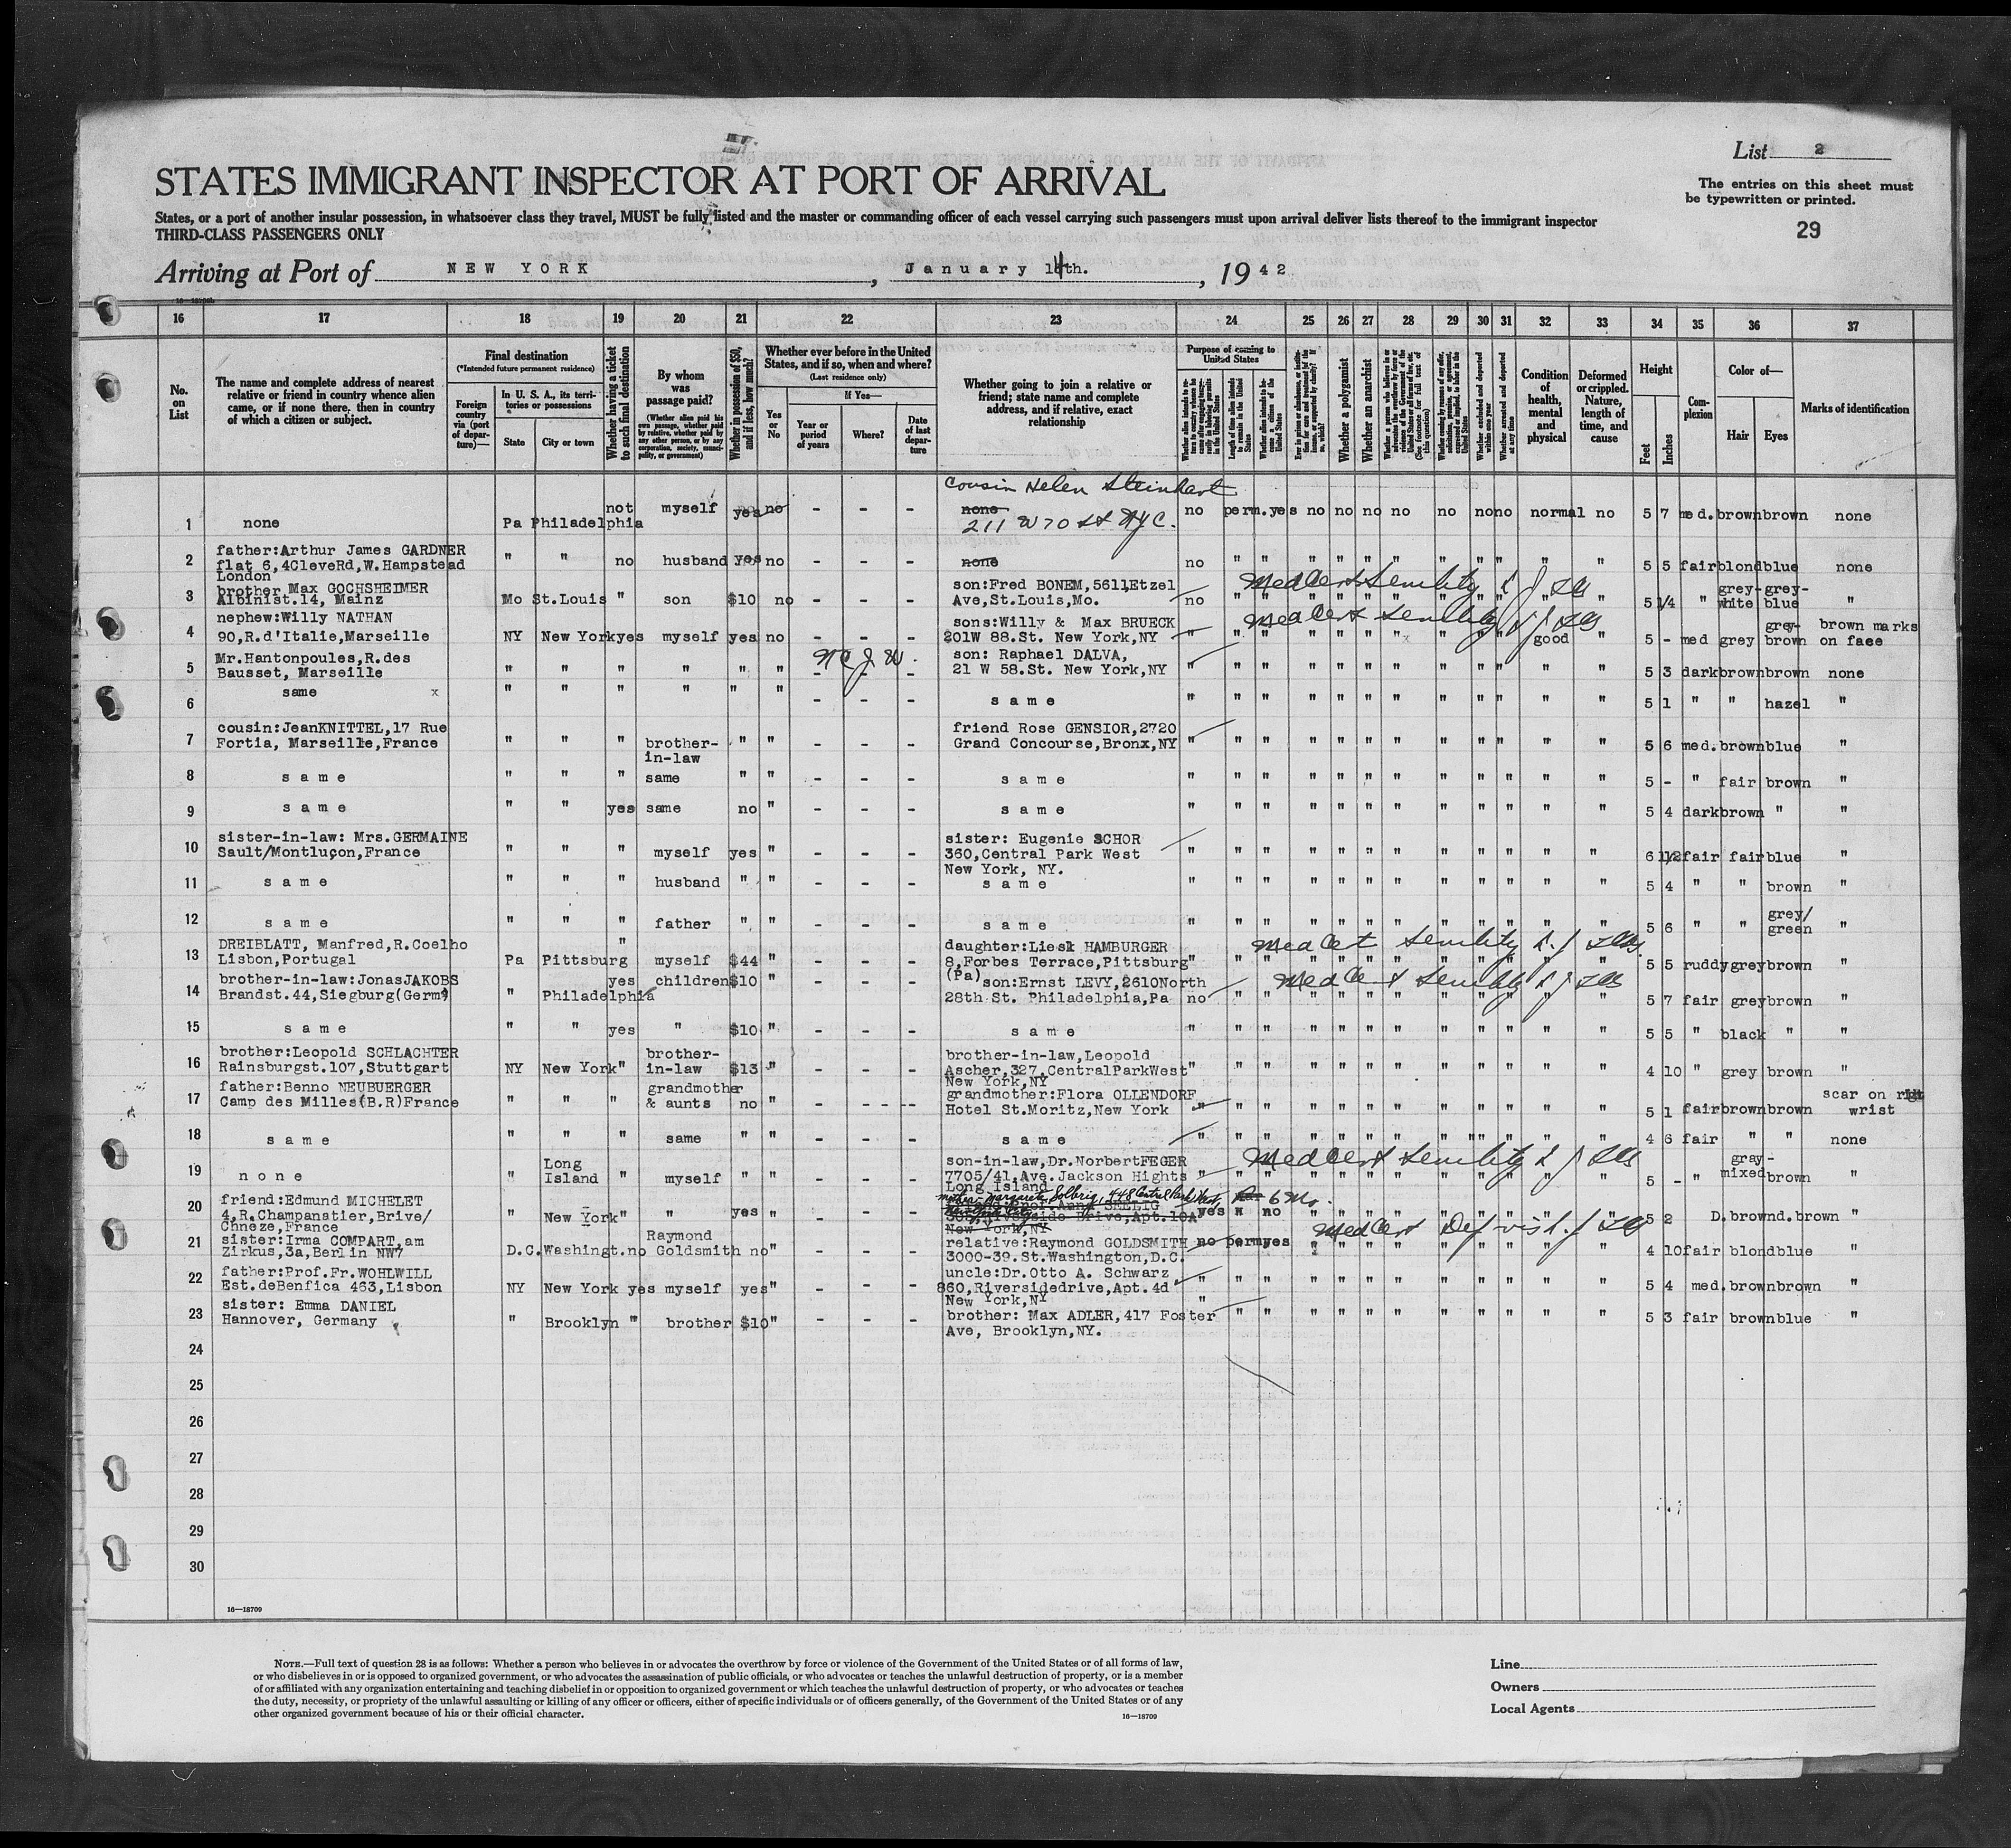 List 2
STATES IMMIGRANT INSPECTOR AT PORT OF ARRIVAL
The entries on this sheet must
be typewritten or printed.
States, or a port of another insular possession, in whatsoever class they travel, MUST be fully listed and the master or commanding officer of each vessel carrying such passengers must upon arrival deliver lists thereof to the immigrant inspector
THIRD-CLASS PASSENGERS ONLY
29
Arriving at Port of NEW YORK, January 14th., 1942
16 17 18 19 20 21 22 23 24 25 26 27 28 29 30 31 32 33 34 35 36 37
No. on List
The name and complete address of nearest relative or friend in country whence alien came, or if none there, then in country of which a citizen or subject.
Final destination
(*Intended future permanent residence)
Foreign country via (port of departure)—
In U. S. A., its territories or possessions
State
City or town
Whether having a ticket to such final destination
By whom was passage paid?
(Whether alien paid his own passage, whether paid by relative, whether paid by any other person, or by any corporation, society, municipality, or government)
Whether in possession of $50, and if less, how much?
Whether ever before in the United States, and if so, when and where?
(Last residence only)
Yes or No
If Yes—
Year or period of years
Where?
Date of last departure
Whether going to join a relative or friend; state name and complete address, and if relative, exact relationship
Purpose of coming to United States
Length of time alien intends to remain in the United States
Whether alien intends to become a citizen of the United States
Whether a polygamist
Whether an anarchist
Whether excluded and deported within one year
Whether arrested and deported at any time
Condition of health, mental and physical
Deformed or crippled. Nature, length of time, and cause
Height
Feet
Inches
Complexion
Color of—
Hair
Eyes
Marks of identification
cousin Helen Steinhart
1 none Pa Philadelphia not myself yes no - - - none no perm. yes no no no no no no no normal no 5 7 med. brown brown none
211 W 70 St NYC.
father:Arthur James GARDNER
2 flat 6,4CleveRd,W.Hampstead " " no husband yes no - - - none no " " " " " " " " " " " 5 5 fair blond blue none
London
brother Max GOCHSHEIMER son:Fred BONEM,5611Etzel Med Cert Senility grey- grey-
3 Albinist.14, Mainz Mo St.Louis " son $10 no - - - Ave,St.Louis,Mo. no " " " " " " " " " " " 5 1/4 " white blue "
nephew:Willy NATHAN sons:Willy & Max BRUECK Med Cert Senility grey- brown marks
4 90,R.d'Italie,Marseille NY New York yes myself yes no - - - 201W 88.St. New York,NY " " " " " " " " " " good " 5 - med grey brown on face
Mr.Hantonpoules,R.des son: Raphael DALVA,
5 Bausset, Marseille " " " " " " - - - 21 W 58.St. New York,NY " " " " " " " " " " " " 5 3 dark brown brown none
6 same x " " " " " " - - - same " " " " " " " " " " " " 5 1 " " hazel "
cousin:JeanKNITTEL,17 Rue friend Rose GENSIOR,2720
7 Fortia, Marseille,France " " " brother- " " - - - Grand Concourse,Bronx,NY " " " " " " " " " " " " 5 6 med. brown blue "
in-law
8 same " " " same " " - - - same " " " " " " " " " " " " 5 - " fair brown "
9 same " " yes same no " - - - same " " " " " " " " " " " " 5 4 dark brown " "
sister-in-law: Mrs.GERMAINE sister: Eugenie SCHOR
10 Sault/Montluçon,France " " " myself yes " - - - 360,Central Park West " " " " " " " " " " " " 6 1/2 fair fair blue "
New York, NY.
11 same " " " husband " " - - - same " " " " " " " " " " " " 5 4 " " brown "
12 same " " " father " " - - - same " " " " " " " " " " " " 5 6 " " grey/green "
DREIBLATT, Manfred,R.Coelho " daughter:Liesk HAMBURGER Med Cert Senility
13 Lisbon,Portugal Pa Pittsburg myself $44 " - - - 8,Forbes Terrace,Pittsburg " " " " " " " " " " " " 5 5 ruddy grey brown "
(Pa)
brother-in-law:JonasJAKOBS yes children $10 " son:Ernst LEVY,2610North Med Cert Senility
14 Brandst.44,Siegburg(Germ) " Philadelphia - - - 28th St. Philadelphia,Pa no " " " " " " " " " " " 5 7 fair grey brown "
15 same " " yes " $10 " - - - same " " " " " " " " " " " " 5 5 " black " "
brother:Leopold SCHLACHTER brother- brother-in-law,Leopold
16 Rainsburgst.107,Stuttgart NY New York " in-law $13 " - - - Ascher,327,CentralParkWest " " " " " " " " " " " " 4 10 " grey brown "
New York,NY
father:Benno NEUBUERGER grandmother grandmother:Flora OLLENDORF scar on right
17 Camp des Milles(B.R)France " " " & aunts no " - - - Hotel St.Moritz,New York " " " " " " " " " " " " 5 1 fair brown brown wrist
18 same " " " same " " - - - same " " " " " " " " " " " " 4 6 fair " " none
Long son-in-law,Dr.NorbertFEGER Med Cert Senility gray-
19 none " Island " myself " " - - - 7705/41,Ave.Jackson Hights " " " " " " " " " " " " 5 - " mixed brown "
Long Island
friend:Edmund MICHELET mother Margarete Solbrig, 448 Central Park West, New York City 6 Mo.
20 4,R.Champanatier,Brive/ " New York " " yes " - - - Drive,Apt.10A yes " no " " " " " " " " " 5 2 D.brown d.brown "
Chneze,France New York,NY
sister:Irma COMPART,am Raymond relative:Raymond GOLDSMITH no perm yes Med Cert Def vis
21 Zirkus,3a,Berlin NW7 D.C. Washingt. no Goldsmith no " - - - 3000-39.St.Washington,D.C. " " " " " " " " " 4 10 fair blond blue "
father:Prof.Fr.WOHLWILL uncle:Dr.Otto A. Schwarz
22 Est.deBenfica 463,Lisbon NY New York yes myself yes " - - - 860,Riversidedrive,Apt.4d " " " " " " " " " " " " 5 4 med. brown brown "
New York,NY
sister: Emma DANIEL brother: Max ADLER,417 Foster
23 Hannover, Germany " Brooklyn " brother $10 " - - - Ave, Brooklyn,NY. " " " " " " " " " " " " 5 3 fair brown blue "
24
25
26
27
28
29
30
16—18709
NOTE.—Full text of question 28 is as follows: Whether a person who believes in or advocates the overthrow by force or violence of the Government of the United States or of all forms of law,
or who disbelieves in or is opposed to organized government, or who advocates the assassination of public officials, or who advocates or teaches the unlawful destruction of property, or is a member
of or affiliated with any organization entertaining and teaching disbelief in or opposition to organized government or which teaches the unlawful destruction of property, or who advocates or teaches
the duty, necessity, or propriety of the unlawful assaulting or killing of any officer or officers, either of specific individuals or of officers generally, of the Government of the United States or of any
other organized government because of his or their official character.
16—18709
Line
Owners
Local Agents